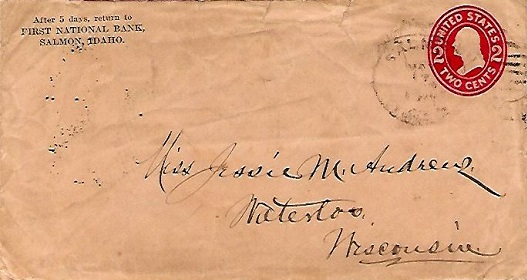 After 5 days, return to
FIRST NATIONAL BANK,
SALMON, IDAHO.
UNITED STATES
2 2
TWO CENTS
SAL
Miss Jessie M. Andrews,
Waterloo,
Wisconsin